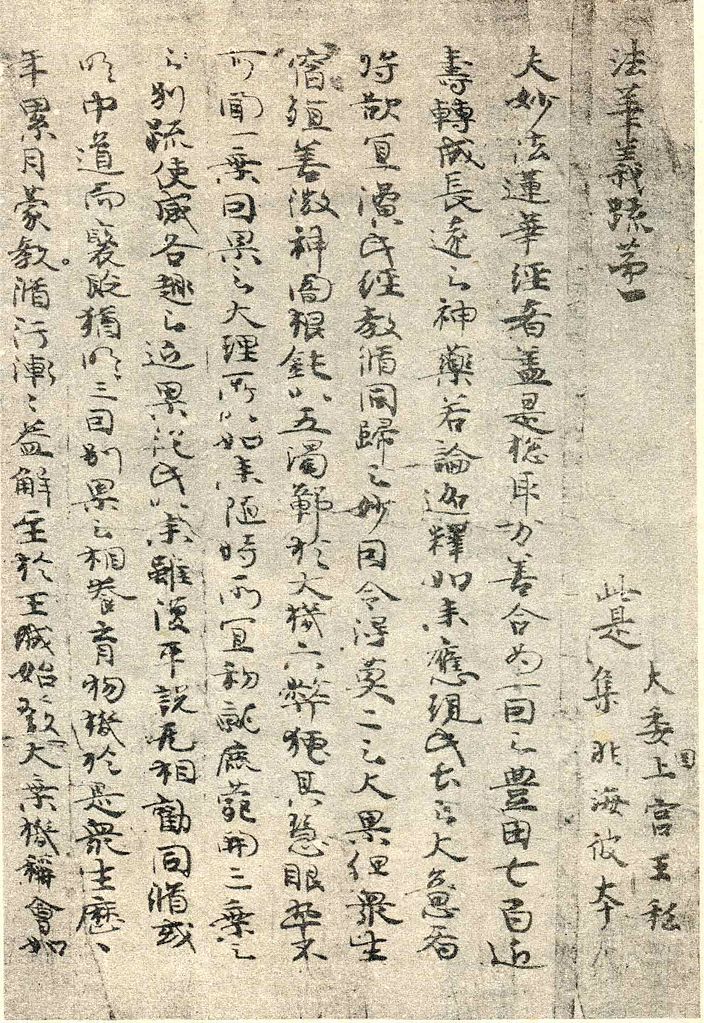 法華義疏第一
此是
大委国上宮王私
集非海彼本
夫妙法蓮華經者盖是惣取万善合為一因之豊田七百近
壽轉成長遠之神藥若論迦釋如来應現此土之大意者
将欲宜演此經教脩同歸之妙因令得莫二之大果但衆生
宿殖善微神闇根鈍以五濁鄣於大機六弊掩其慧眼卒不
可聞一乗因果之大理所以如来随時所宜初就鹿菀開三乗之
別疏使感各趣之近果従此以来雖復平説无相勸同脩或
明中道而襃貶猶明三因別果之相養育物機於是衆生歴〻
年累月蒙教脩行漸〻益解至於王城始發大乗機稱會如